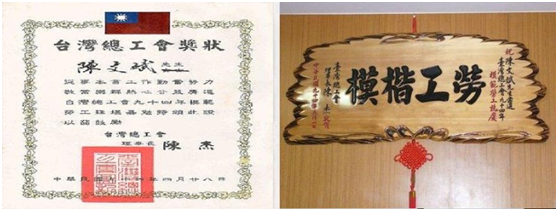 台灣總工會獎狀
陳文斌 先生
從事本業工作勤奮努力
敬業樂群熱心公益膺選
台灣總工會九十四年模範
勞工殊堪嘉勉特頒獎狀
以茲鼓勵
台灣總工會
理事長 陳杰
中華民國九十四年四月廿八日
祝陳文斌先生當選
模範勞工誌慶
勞工楷模